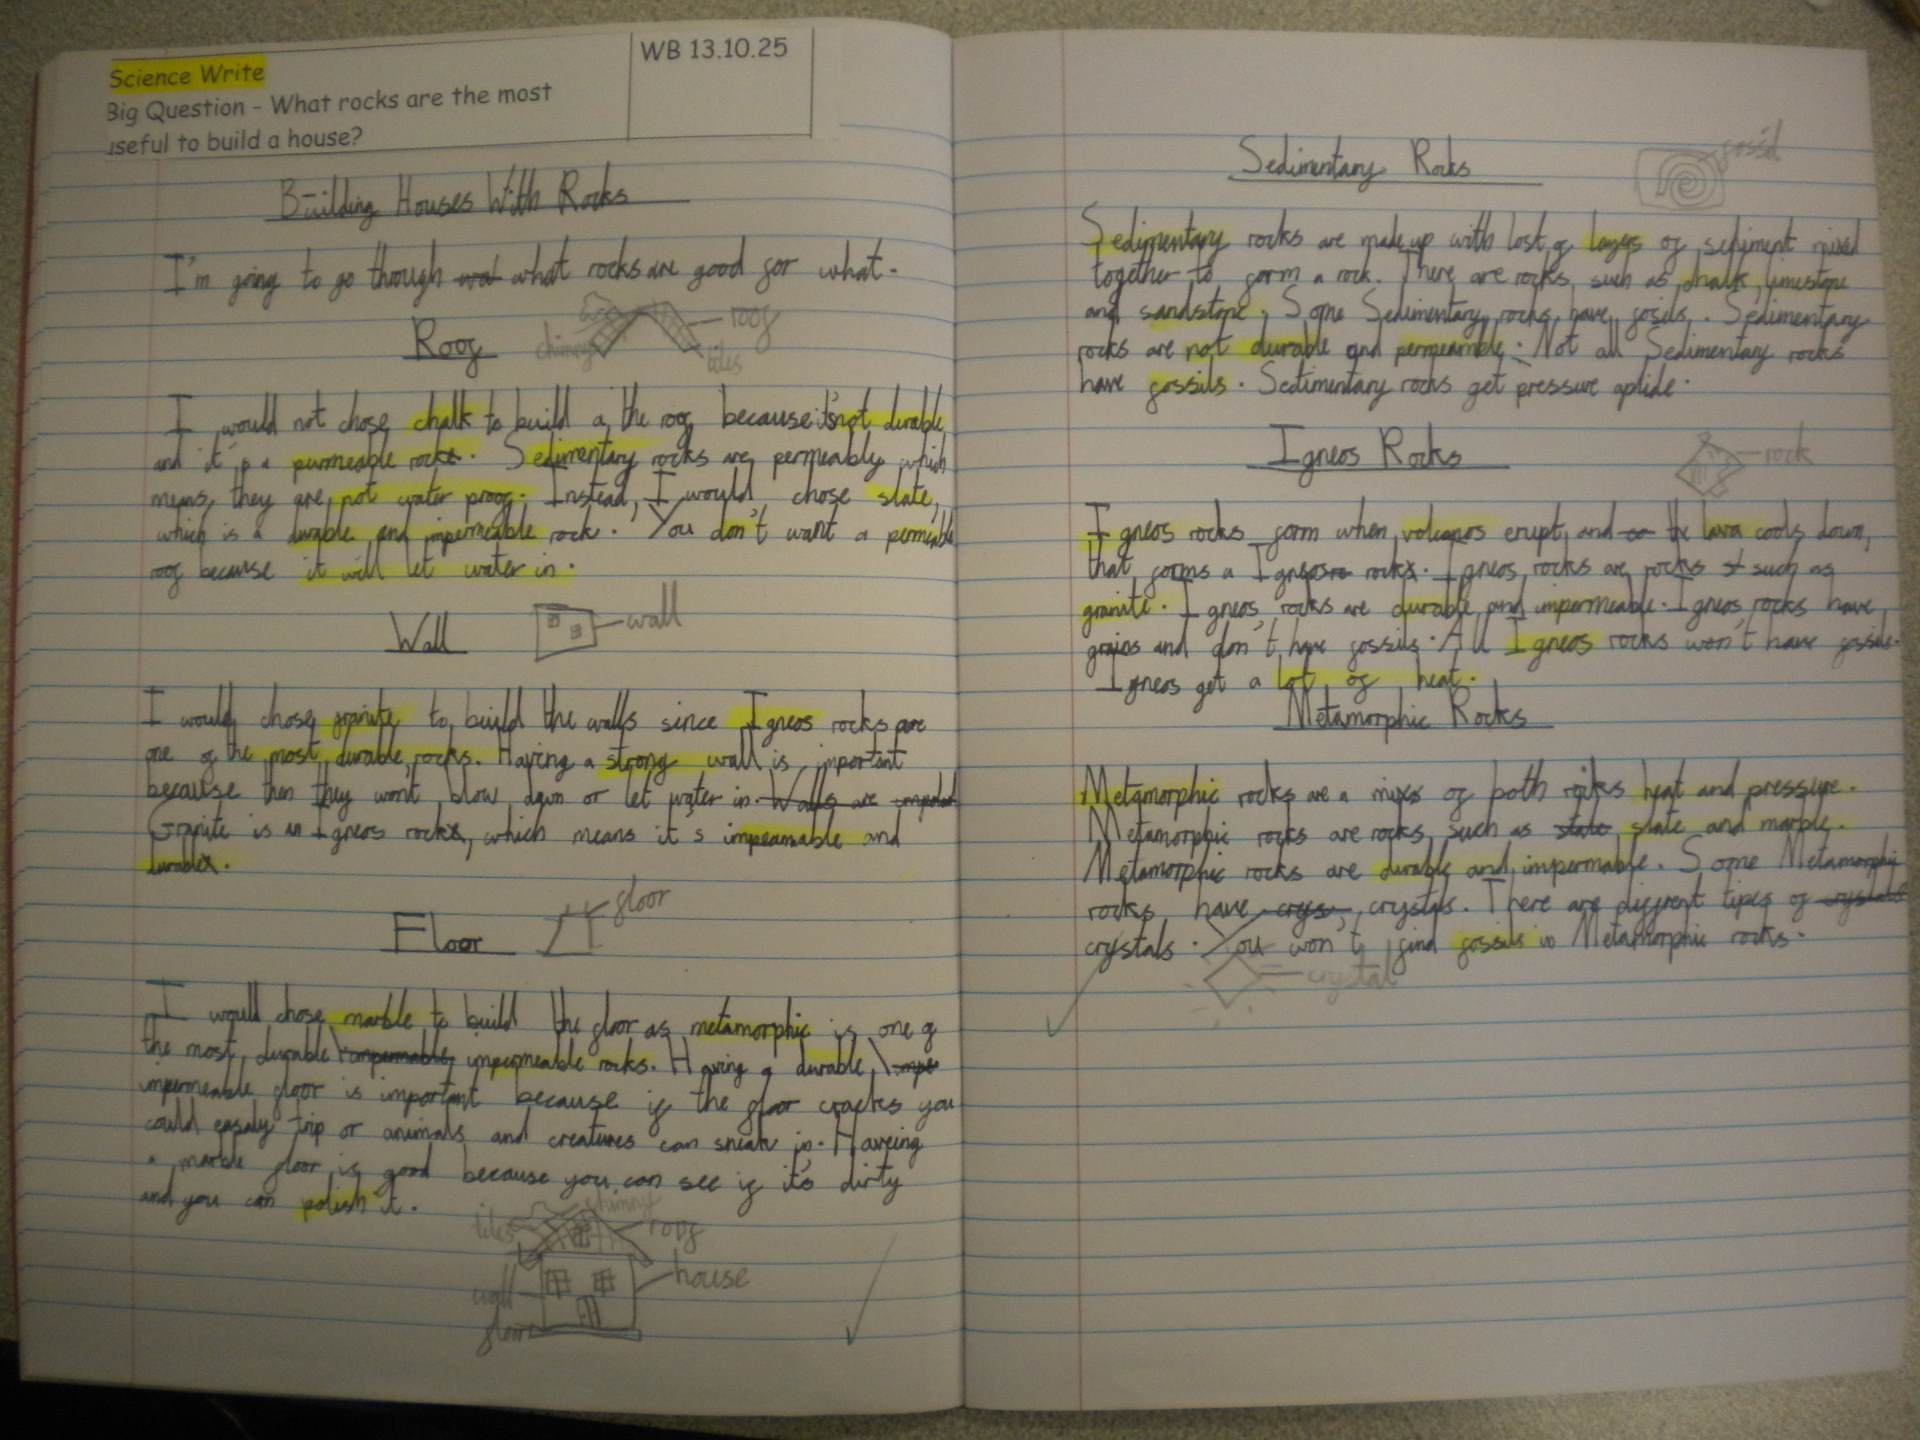 Science Write
Big Question - What rocks are the most
useful to build a house?
WB 13.10.25
Building Houses With Rocks
I'm going to go through what rocks are good for what.
Roof
roof
chimney
tiles
I would not chose chalk to build a the roof because it's not durable
and it is a purmeable rock. Sedimentary rocks are permeably which
means they are not water proof. Instead, I would chose slate,
which is a durable and impermeable rock. You don't want a permeable
roof because it will let water in.
Wall
wall
I would chose granite to build the walls since Igneos rocks are
one of the most durable rocks. Having a strong wall is important
because then they wont blow down or let water in. Walls are important
Granite is an Igneos rock, which means it's impeamable and
durable.
Floor
floor
I would chose marble to build the floor as metamorphic is one of
the most durable \ impermable, impermeable rocks. Having a durable \ impe
impermeable floor is important because if the floor cracks you
could easaly trip or animals and creatures can sneak in. Haveing
a marble floor is good because you can see if it's dirty
and you can polish it.
tiles
chimny
roof
wall
house
floor
Sedimentary Rocks
fossil
Sedimentary rocks are made up with lost of layers of sediment mixed
together to form a rock. There are rocks such as chalk, limestone
and sandstone. Some Sedimentary rocks have fosils. Sedimentary
rocks are not durable and permeamble. Not all Sedimentary rocks
have fossils. Sedimentary rocks get pressure aplide.
Igneos Rocks
rock
Igneos rocks form when volcanos erupt and the lava cools down,
that forms a Igneos rock. Igneos rocks are rocks such as
granite. Igneos rocks are durable and impermeable. Igneos rocks have
grains and don't have fossils. All Igneos rocks won't have fossils.
Igneos get a lot of heat.
Metamorphic Rocks
Metamorphic rocks are a mix of both rocks heat and pressure.
Metamorphic rocks are rocks such as slate slate and marble.
Metamorphic rocks are durable and impermable. Some Metamorphic
rocks have crys crystals. There are different types of crystals
crystals. You won't find fossils in Metamorphic rocks.
crystal